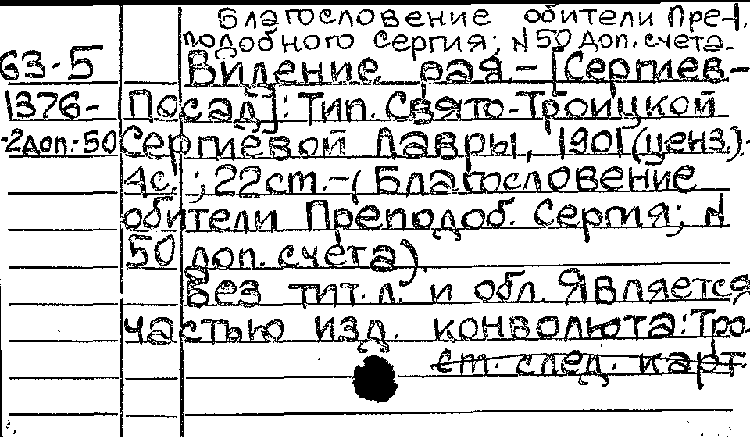 Благословение обители Пре-
подобного Сергия; N 50 доп. счета.
63-5 Видение рая.-[Сергиев-
1376- Посад]: Тип. Свято-Троицкой
-2доп.-50 Сергиевой Лавры, 1901(ценз.).-
4с.; 22см.-(Благословение
обители Преподоб. Сергия; N
50 доп. счета).
Без тит.л. и обл. Является
частью изд. конволюта: Тро-
см. след. карт